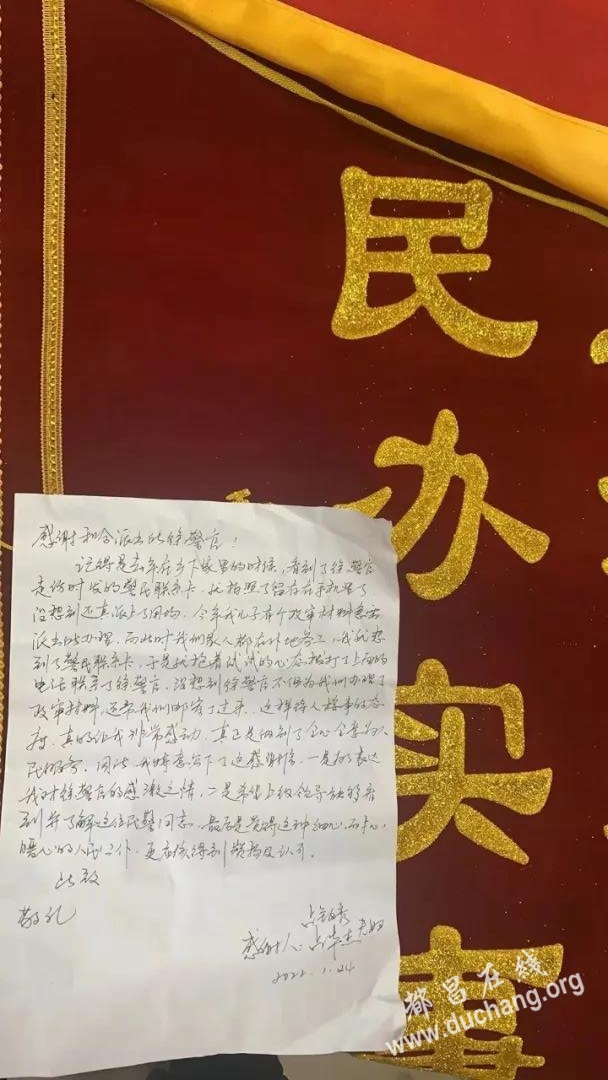 民办实事
感谢和合派出所徐警官！
记得是去年在乡下家里的时候，看到了徐警官
走访时发的警民联系卡，就拍照了留存在手机里了
没想到还真派上了用场，今年我儿子有个政审材料需要
派出所办理，而此时我们家人都在外地务工，我就想
到了警民联系卡，于是就抱着试试的心态拨打了上面的
电话联系了徐警官，没想到徐警官不仅为我们办理了
政审材料，还帮我们邮寄了过来，这样待人接事的态
度，真的让我非常感动，真正是做到了全心全意为人
民服务。因此，我特意写下了这感谢信，一是为了表达
我对徐警官的感激之情，二是希望上级领导能够看
到并了解这位民警同志，最后是觉得这种细心、而
暖心的人民工作，更应该得到颂扬及认可。
此致
敬礼
感谢人：
2022.1.24
都昌在线
www.duchang.org